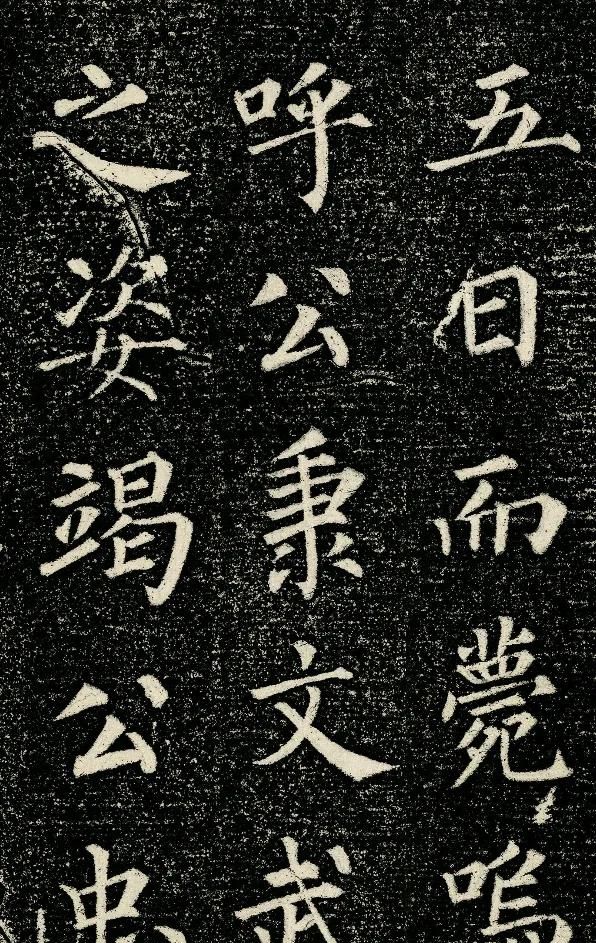 五日而薨嗚
呼公秉文武
之姿竭公忠